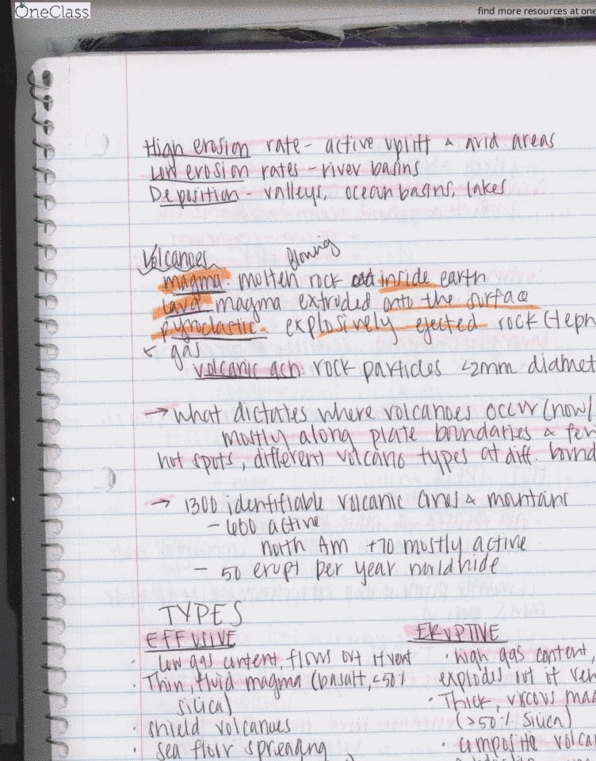 OneClass
find more resources at one
High erosion rate - active uplift & arid areas
Low erosion rates - river basins
Deposition - valleys, ocean basins, lakes
Volcanoes
flowing
magma: molten rock inside earth
lava: magma extruded onto the surface
pyroclastic: explosively ejected rock (teph
& gas
volcanic ash: rock particles <2mm diamet
→ what dictates where volcanoes occur (now/
mostly along plate boundaries & few
hot spots, different volcano types at diff. bound
→ 1300 identifiable volcanic cones & mountains
- 600 active
North Am +70 mostly active
- 50 erupt per year worldwide
TYPES
EFFUSIVE
ERUPTIVE
· low gas content, flows out of vent
· high gas content,
· Thin, fluid magma (basalt, <50%
explodes out of ven
silica)
· Thick, viscous mag
· shield volcanoes
(>50% silica)
· sea floor spreading
· composite volca